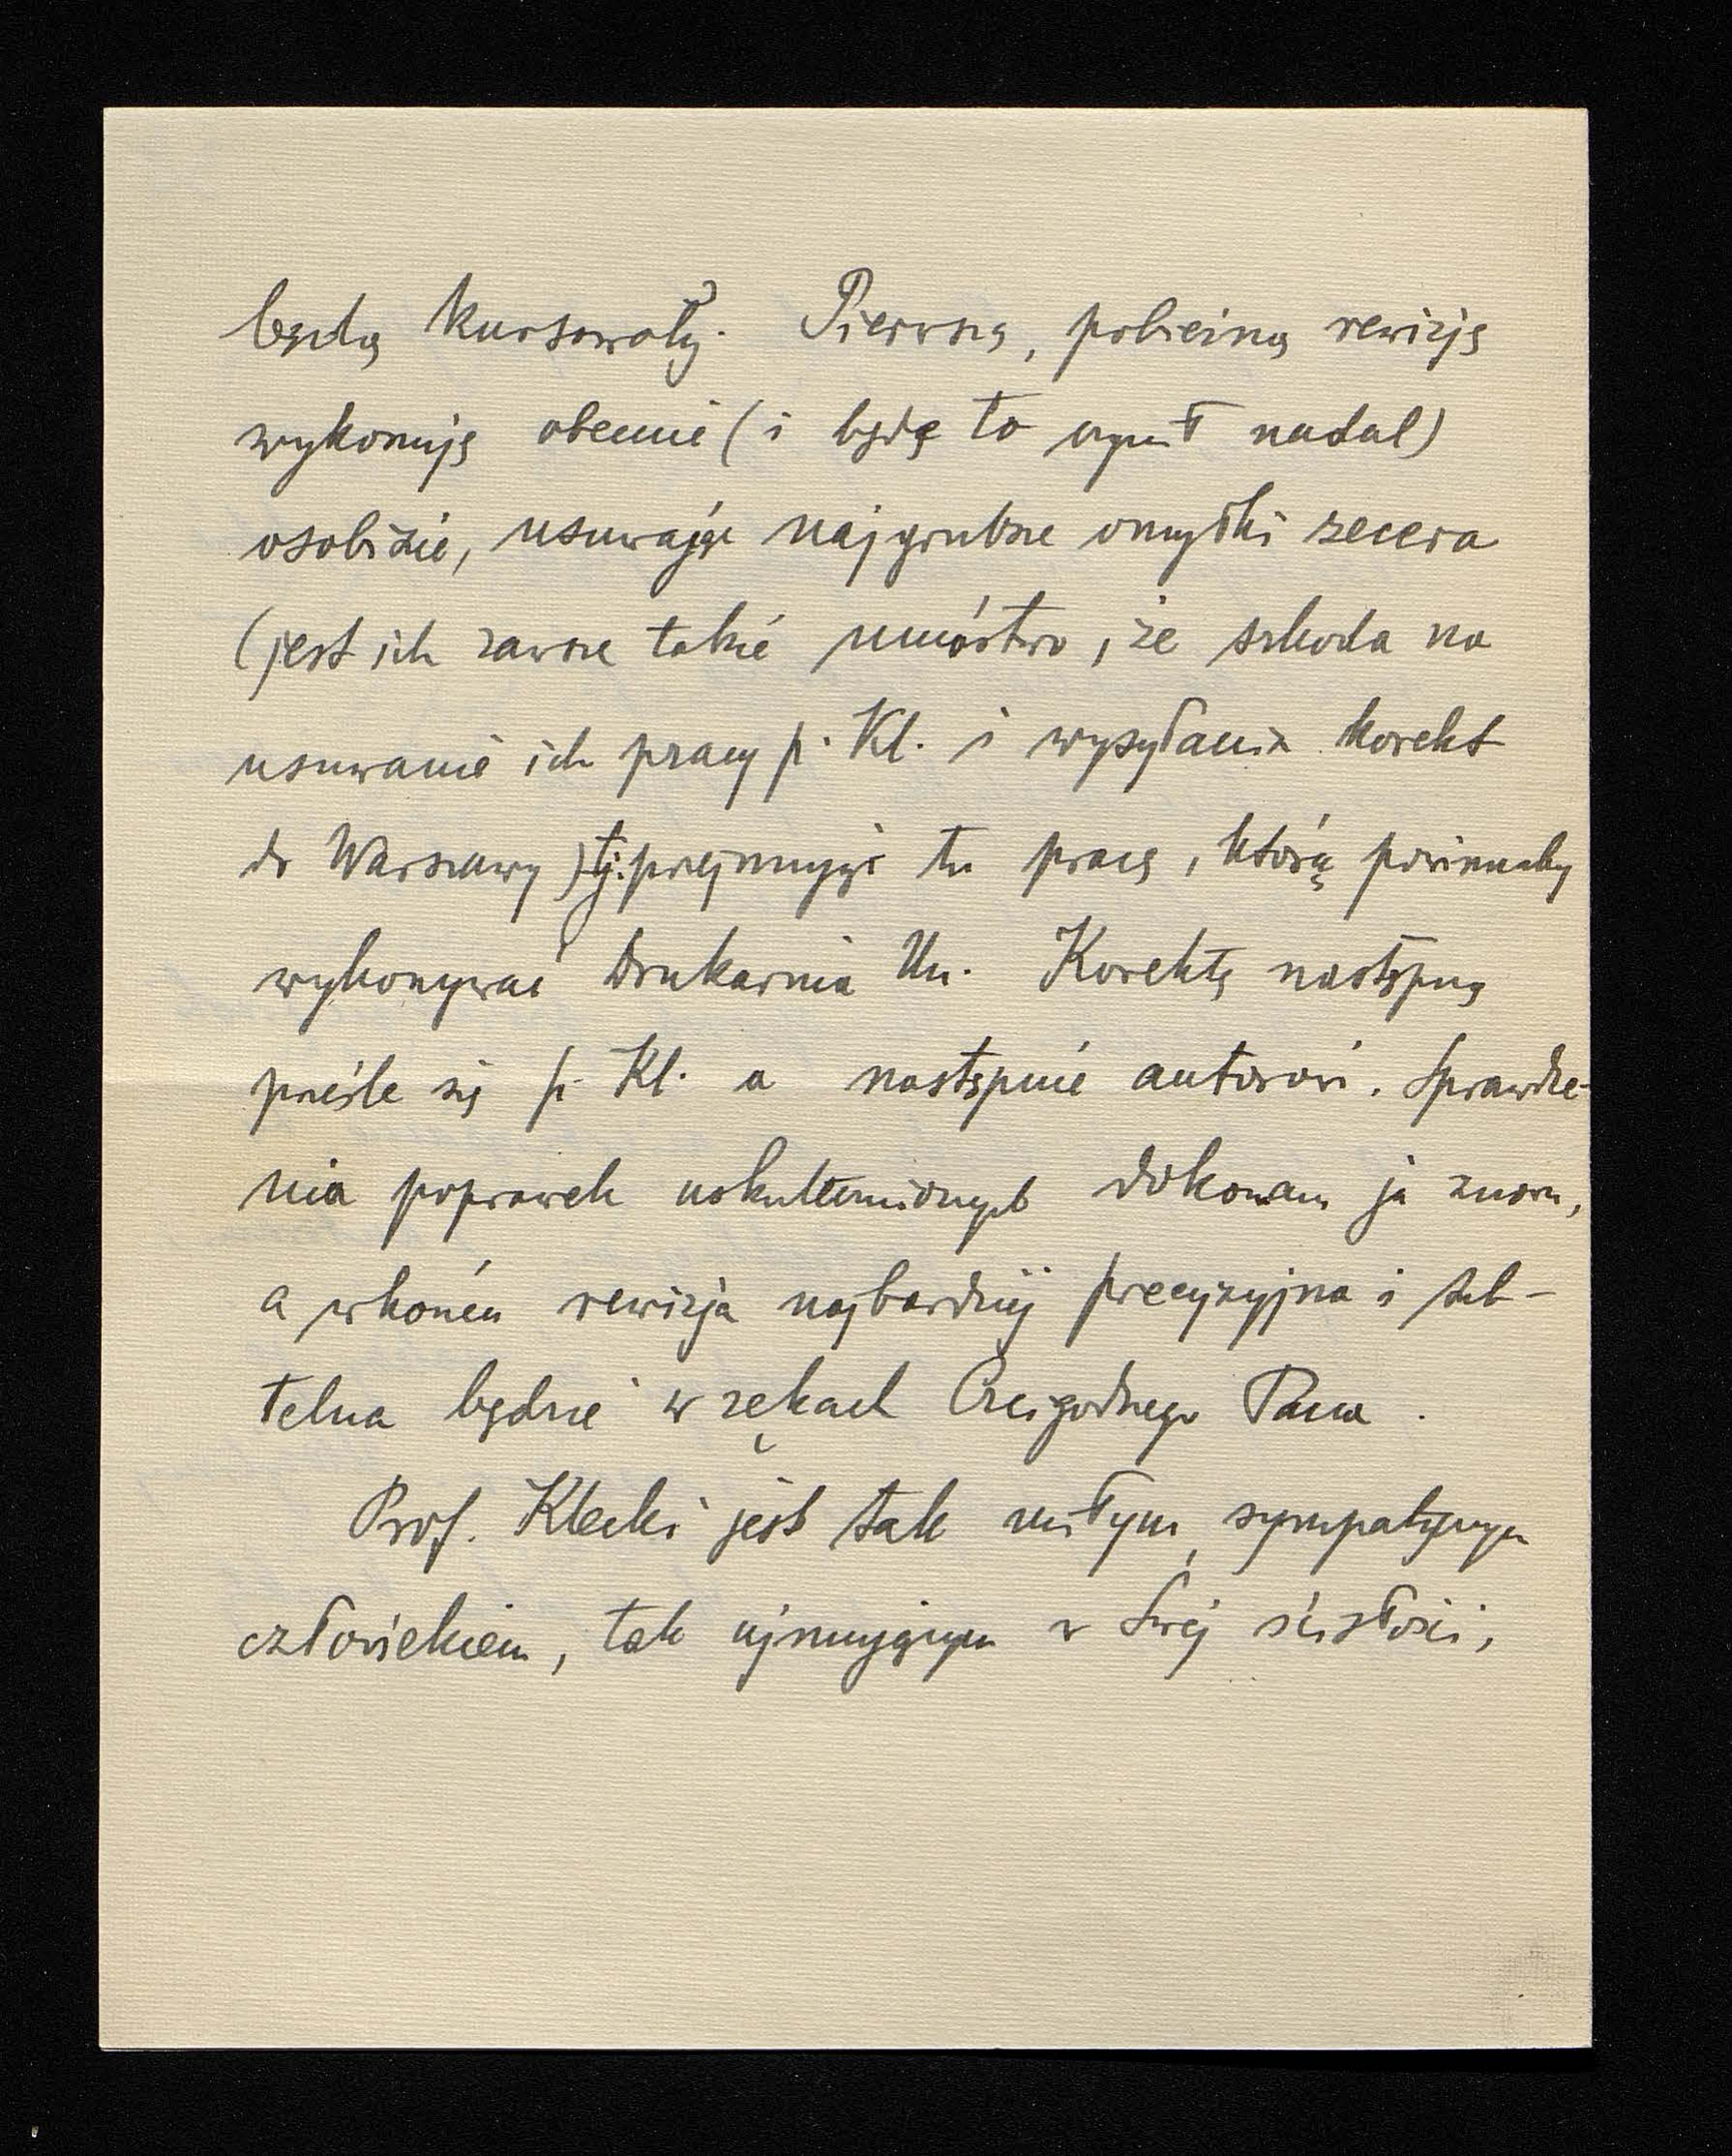 będą kursowały. Pierwszą, pobieżną rewizję
wykonuję obecnie (i będę to czynił nadal)
osobiście, usuwając najgrubsze omyłki zecera
(jest ich zawsze takie mnóstwo, że szkoda na
usuwanie ich pracy p. Kl. i wysyłania korekt
do Warszawy) tj. przejmując tu pracę, którą powinnaby
wykonywać Drukarnia Un. Korektę następną
prześle się p. Kl. a następnie autorowi. Sprawdze-
nia poprawek uskutecznionych dokonam ja znowu,
a wkońcu rewizja najbardziej precyzyjna i sub-
telna będzie w rękach Czcigodnego Pana.
Prof. Klecki jest tak miłym, sympatycznym
człowiekiem, tak ujmującym w swej ścisłości,